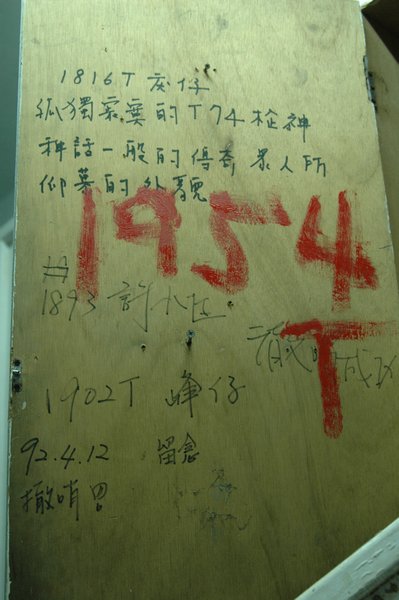 1816T 灰仔
孤獨寂寞的T74枪神
神話一般的傳奇眾人所
仰慕的外貌
1954
T
1893 許小
1902T 峰仔
92.4.12 留念
撤哨